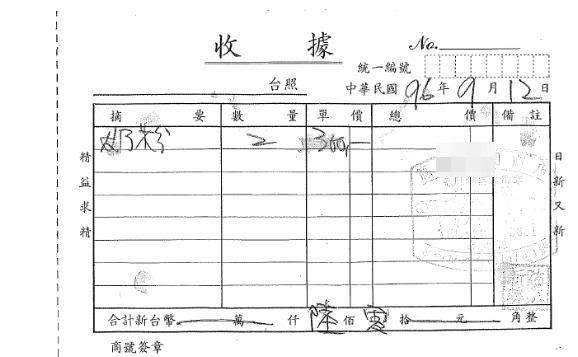 收據
No.
統一編號
台照 中華民國 96 年 9 月 12 日
摘要 數量 單價 總價 備註
奶粉 2 300,—
精益求精
日新又新
合計新台幣 萬 仟 陸 佰 零 拾 元 角整
商號簽章